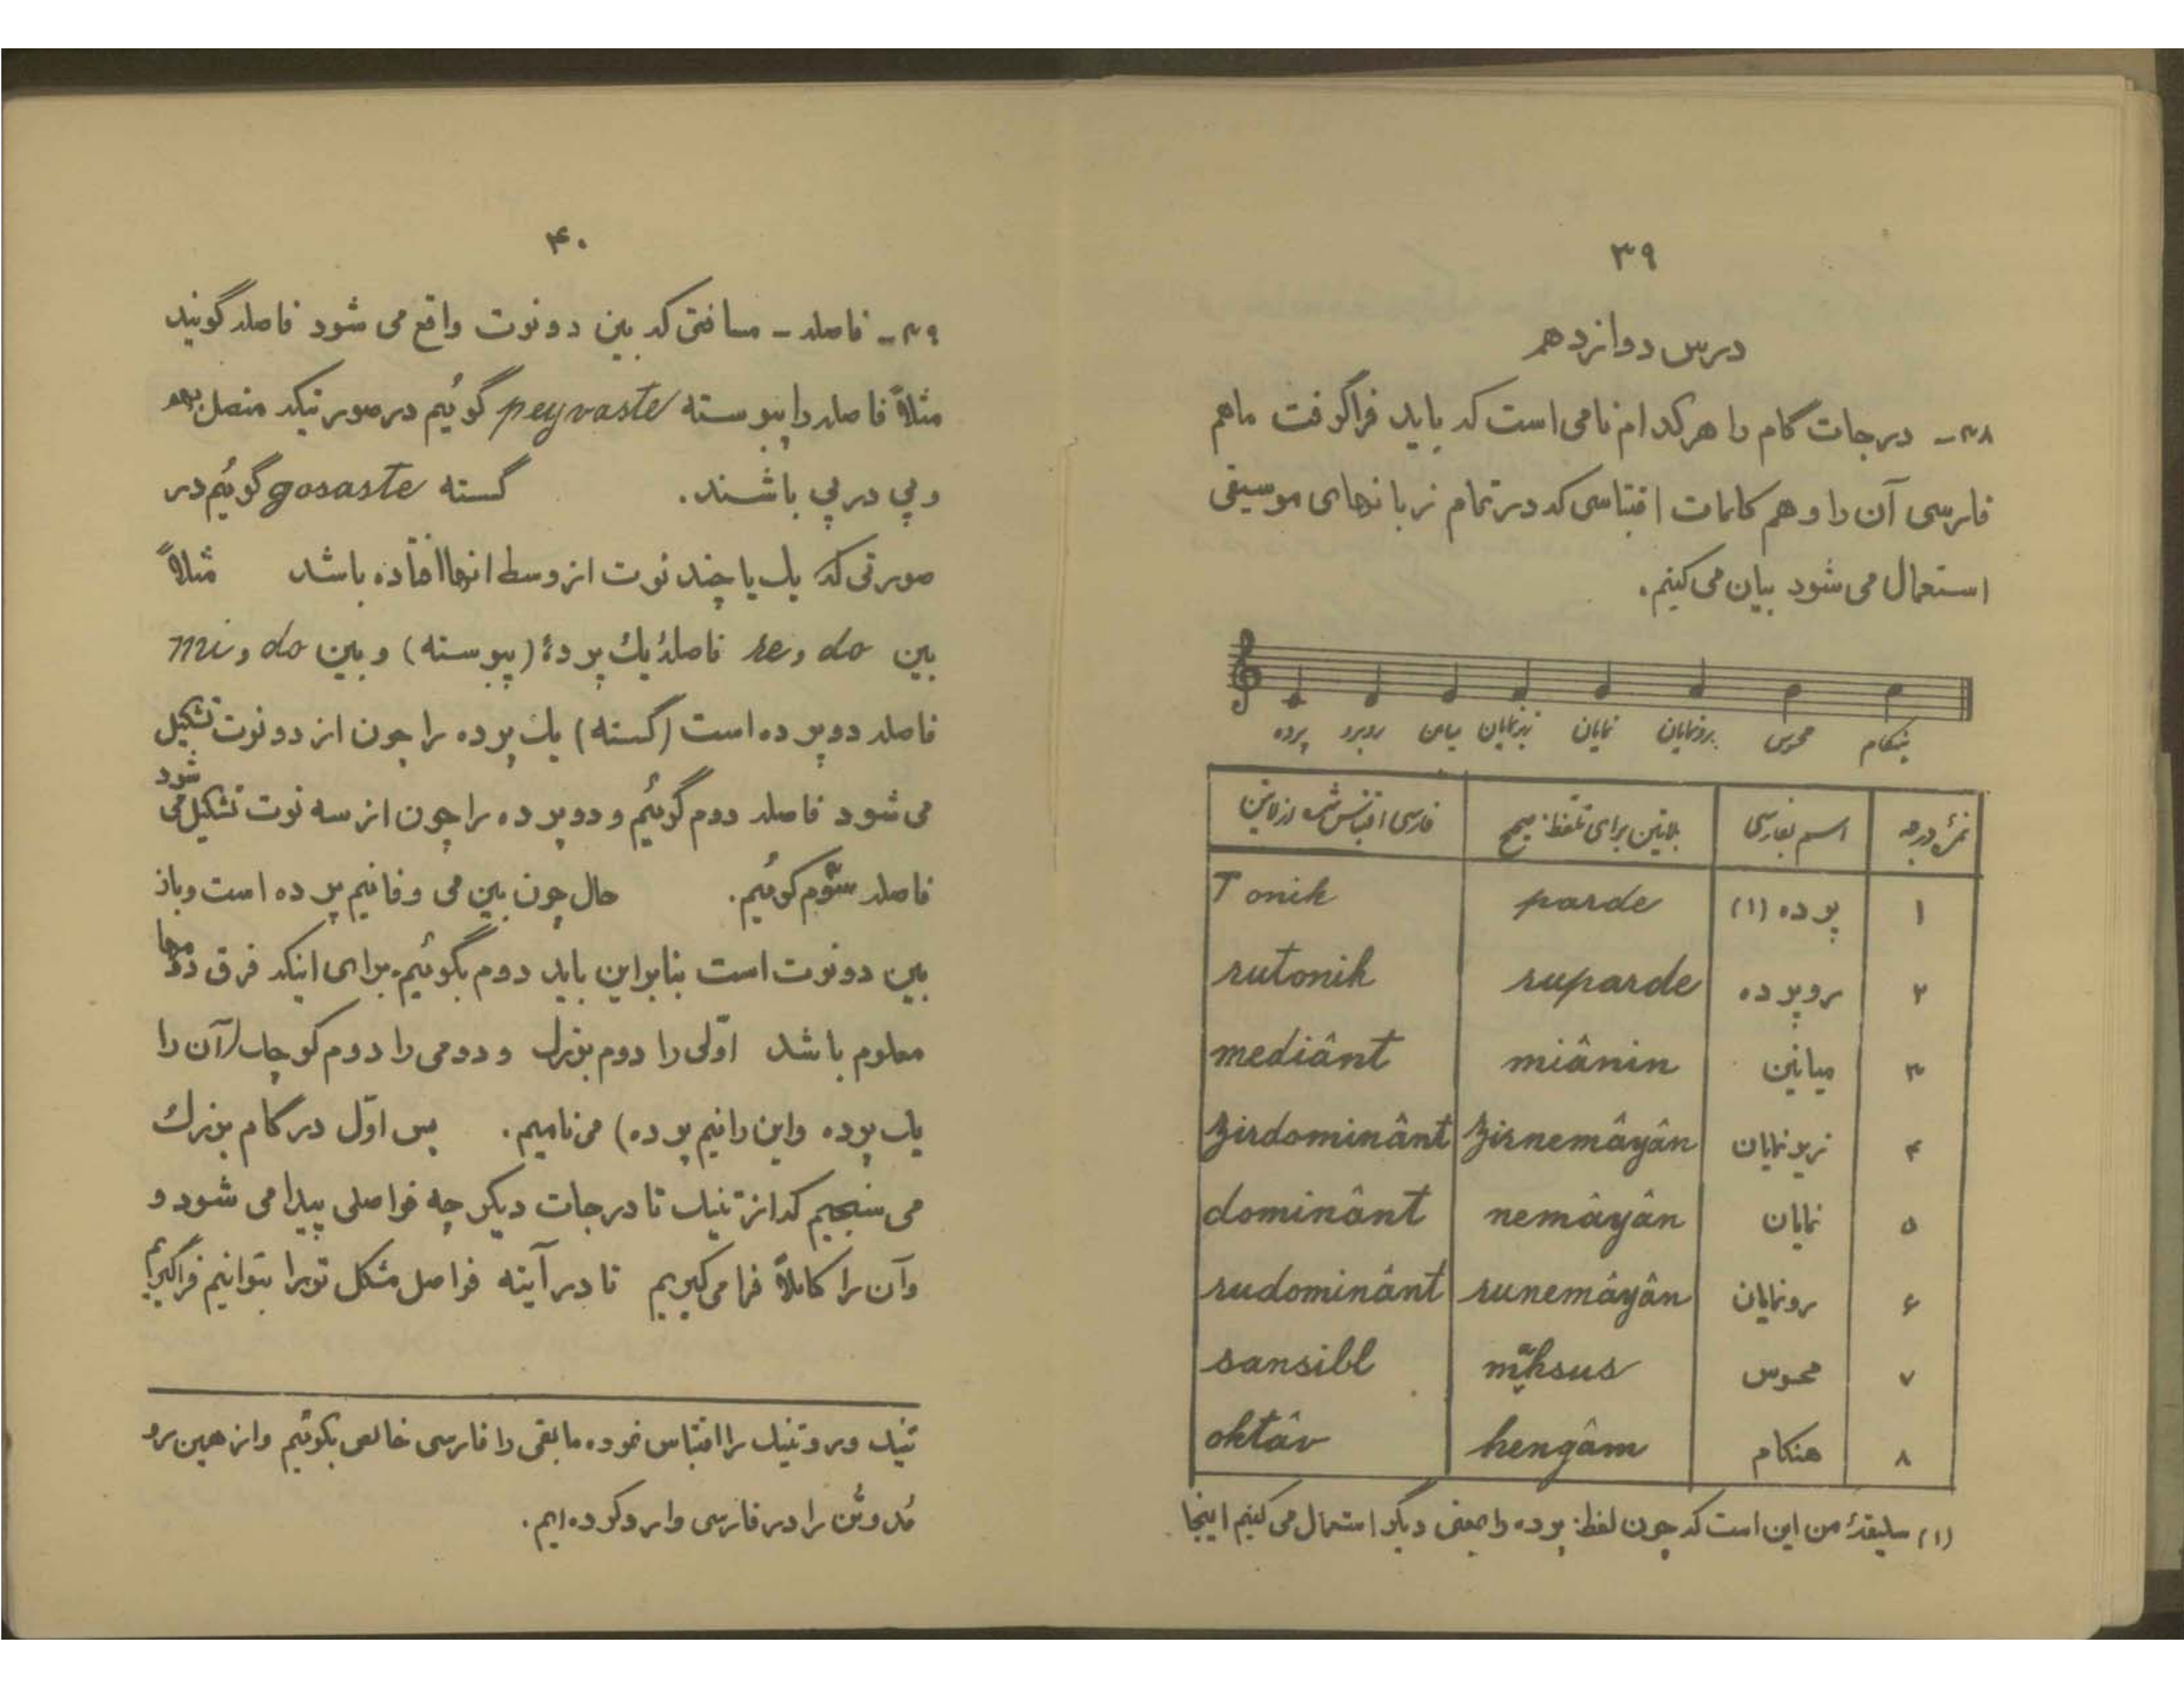 ۳۹
درس دوازدهم
۳۸ـ درجات گام را هرکدام نامی است که باید فراگرفت ماهم
فارسی آن را و هم کلمات اقتباسی که در تمام زبانهای موسیقی
استعمال می شود بیان می کنیم.
پرده روپرده میانین زیرنمایان نمایان رونمایان محسوس هنگام
نمرۀ درجه اسم بفارسی بلاتین برای تلفظ صحیح فارسی اقتباس شده از لاتین
۱ پرده (۱) parde Tonik
۲ روپرده ruparde rutonik
۳ میانین miânin mediânt
۴ زیرنمایان zirnemâyân zirdominânt
۵ نمایان nemâyân dominânt
۶ رونمایان runemâyân rudominânt
۷ محسوس mahsus sansibl
۸ هنگام hengâm oktâv
(۱) سلیقۀ من این است که چون لفظ پرده را بمعنی دیگر استعمال می کنیم اینجا
۴۰
۳۹ـ فاصله ـ مسافتی که بین دو نوت واقع می شود فاصله گویند
مثلاً فاصله را پیوسته peyvaste گوئیم در صورتیکه متصل بهم
و پی در پی باشند. گسسته gosaste گوئیم در
صورتی که یک یا چند نوت از وسط انها افتاده باشد مثلاً
بین do و re فاصلۀ یک پردۀ (پیوسته) و بین do و mi
فاصله دو پرده است (گسسته) یک پرده را چون از دو نوت تشکیل
می شود فاصله دوم گوئیم و دو پرده را چون از سه نوت تشکیل می شود
فاصله سوّم گوئیم. حال چون بین می و فا نیم پرده است و باز
بین دو نوت است بنابراین باید دوم بگوئیم. برای اینکه فرق دومها
معلوم باشد اوّلی را دوم بزرگ و دومی را دوم کوچک (آن را
یک پرده و این را نیم پرده) می نامیم. پس اوّل در گام بزرگ
می سنجیم که از تنیک تا درجات دیگر چه فواصلی پیدا می شود و
وآن را کاملاً فرا می گیریم تا در آیته فواصل مشکل تر را بتوانیم فراگیریم
تنیک و روتنیک را اقتباس نموده مابقی را فارسی خالص بگوئیم و از همین رو
مُد و تُن را در فارسی وارد کرده ایم.